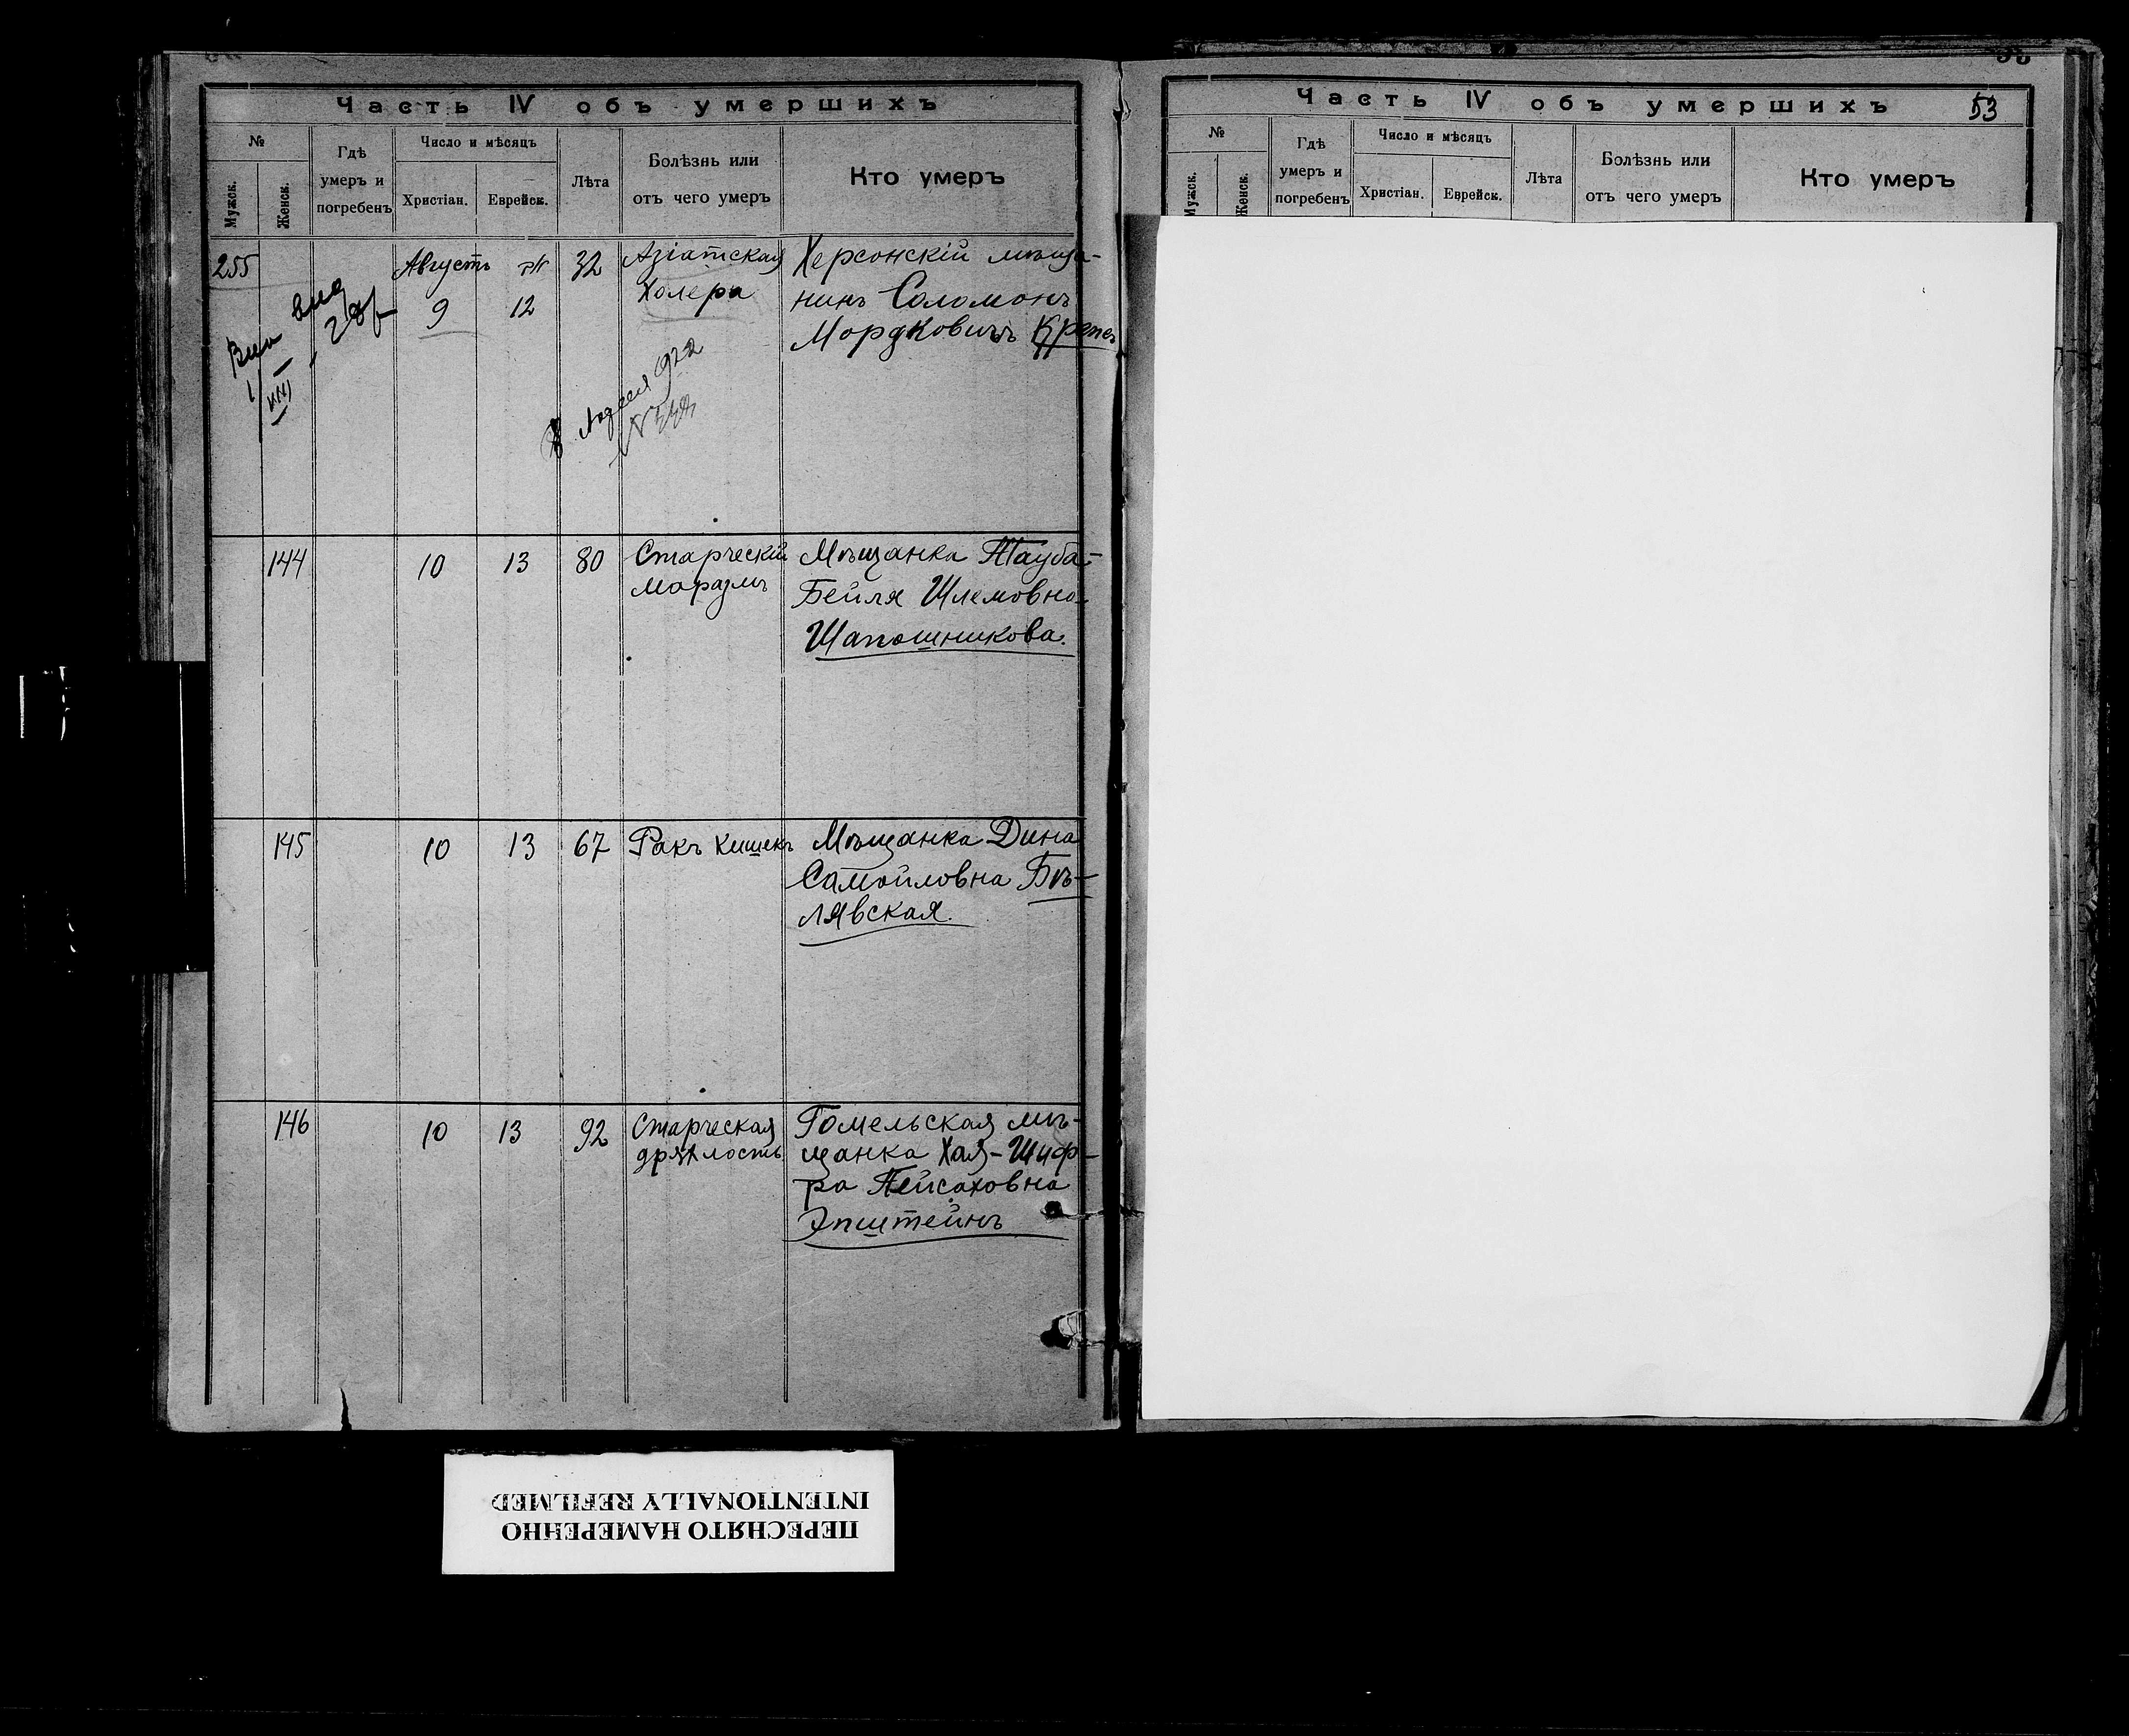 Часть IV объ умершихъ
№
Мужск.
Женск.
Гдѣ
умеръ и
погребенъ
Число и мѣсяцъ
Христіан.
Еврейск.
Лѣта
Болѣзнь или
отъ чего умеръ
Кто умеръ
255
Августъ
9
12
32
Азіатская
Холера
Херсонскій мѣща-
нинъ Соломонъ
Мордковичъ
144
10
13
80
Старческій
маразмъ
Мѣщанка Тауба-
Бейля Шлемовна
Шапошникова.
145
10
13
67
Ракъ кишекъ
Мѣщанка Дина
Самойловна Бѣ-
лявская.
146
10
13
92
Старческая
дряхлость
Гомельская мѣ-
щанка Хая-Шиф-
ра Пейсаховна
Эпштейнъ
Часть IV объ умершихъ
53
№
Мужск.
Женск.
Гдѣ
умеръ и
погребенъ
Число и мѣсяцъ
Христіан.
Еврейск.
Лѣта
Болѣзнь или
отъ чего умеръ
Кто умеръ
ПЕРЕСНЯТО НАМЕРЕННО
INTENTIONALLY REFILMED